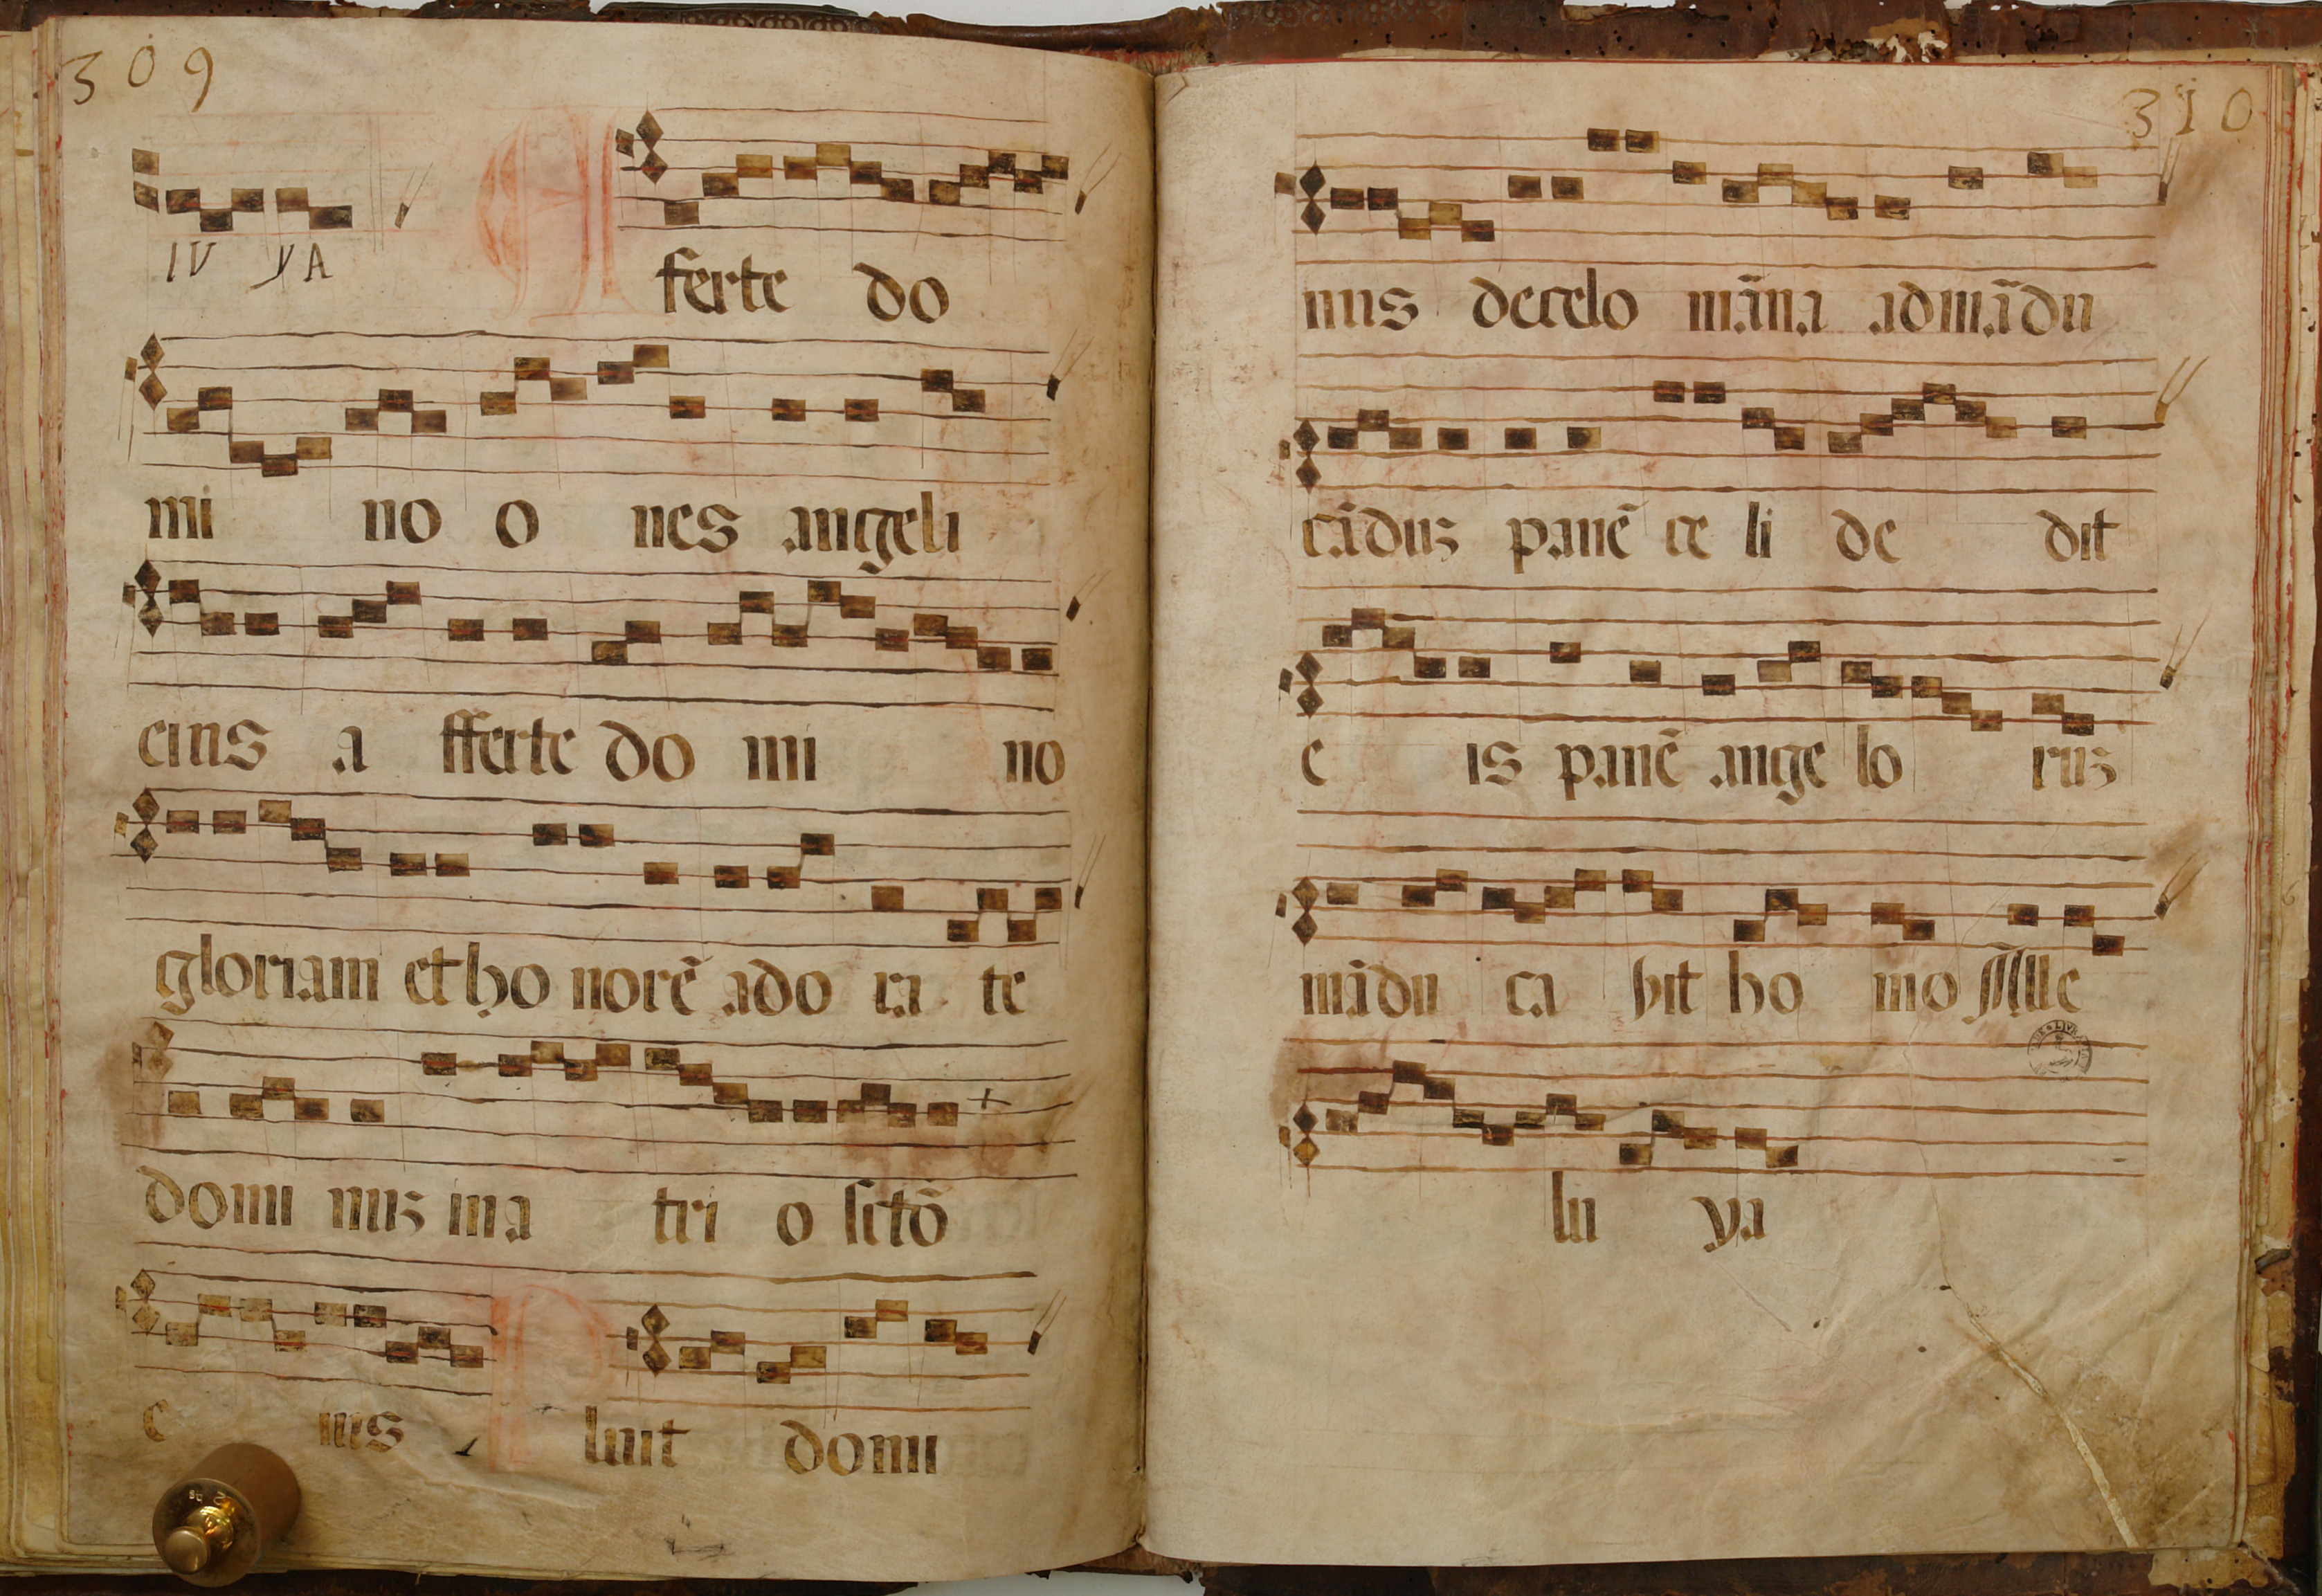 309
IU YA
Afferte do
mi no o nes angeli
eius a fferte do mi no
gloriam et ho norē ado ra te
domi nuz in a tri o sctō
e ius Pluit domi
310
nus de celo māna ad mādu
cāduz panē ce li de dit
e is panē ange lo ruz
mādu ca bit ho mo Alle
lu ya